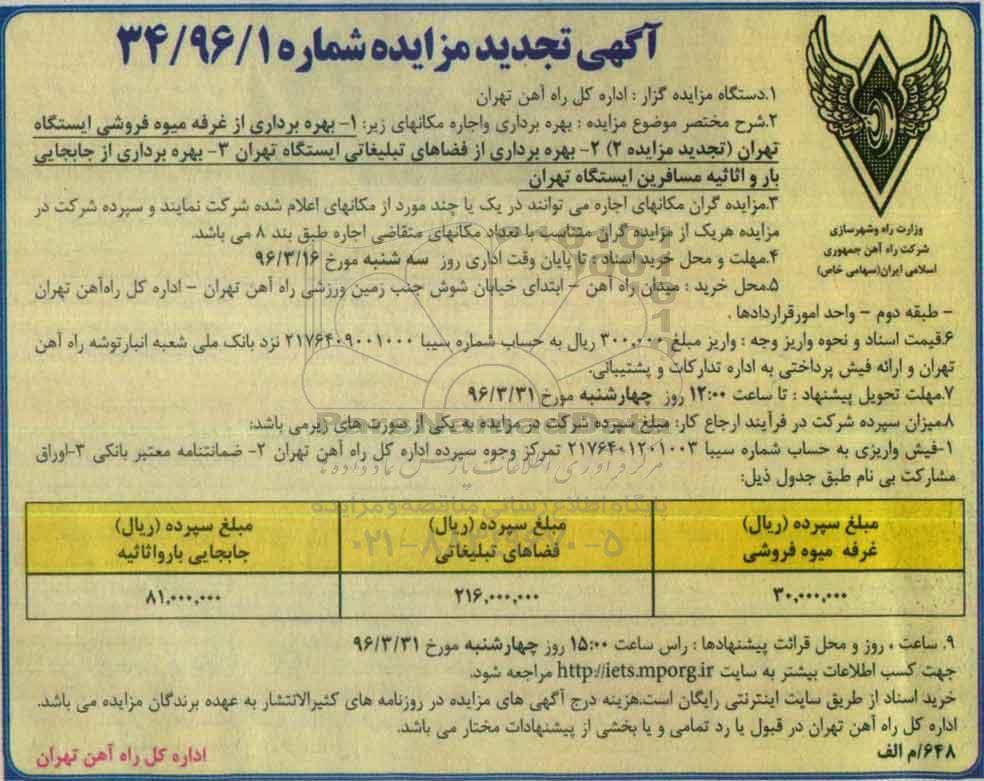 آگهی تجدید مزایده شماره ۳۴/۹۶/۱
وزارت راه وشهرسازی
شرکت راه آهن جمهوری
اسلامی ایران(سهامی خاص)
۱.دستگاه مزایده گزار : اداره کل راه آهن تهران
۲.شرح مختصر موضوع مزایده : بهره برداری واجاره مکانهای زیر: ۱- بهره برداری از غرفه میوه فروشی ایستگاه
تهران (تجدید مزایده ۲) ۲- بهره برداری از فضاهای تبلیغاتی ایستگاه تهران ۳- بهره برداری از جابجایی
بار و اثاثیه مسافرین ایستگاه تهران
۳.مزایده گران مکانهای اجاره می توانند در یک یا چند مورد از مکانهای اعلام شده شرکت نمایند و سپرده شرکت در
مزایده هریک از مزایده گران متناسب با تعداد مکانهای متقاضی اجاره طبق بند ۸ می باشد.
۴.مهلت و محل خرید اسناد : تا پایان وقت اداری روز سه شنبه مورخ ۹۶/۳/۱۶
۵.محل خرید : میدان راه آهن – ابتدای خیابان شوش جنب زمین ورزشی راه آهن تهران – اداره کل راه‌آهن تهران
– طبقه دوم – واحد امورقراردادها .
۶.قیمت اسناد و نحوه واریز وجه : واریز مبلغ ۳۰۰,۰۰۰ ریال به حساب شماره سیبا ۲۱۷۶۴۰۹۰۰۱۰۰۰ نزد بانک ملی شعبه انبارتوشه راه آهن
تهران و ارائه فیش پرداختی به اداره تدارکات و پشتیبانی.
۷.مهلت تحویل پیشنهاد : تا ساعت ۱۲:۰۰ روز چهارشنبه مورخ ۹۶/۳/۳۱
۸.میزان سپرده شرکت در فرآیند ارجاع کار: مبلغ سپرده شرکت در مزایده به یکی از صورت های زیرمی باشد:
۱-فیش واریزی به حساب شماره سیبا ۲۱۷۶۴۰۱۲۰۱۰۰۳ تمرکز وجوه سپرده اداره کل راه آهن تهران ۲- ضمانتنامه معتبر بانکی ۳-اوراق
مشارکت بی نام طبق جدول ذیل:
مبلغ سپرده (ریال) مبلغ سپرده (ریال) مبلغ سپرده (ریال)
غرفه میوه فروشی فضاهای تبلیغاتی جابجایی بارواثاثیه
۳۰,۰۰۰,۰۰۰ ۲۱۶,۰۰۰,۰۰۰ ۸۱,۰۰۰,۰۰۰
۹. ساعت ، روز و محل قرائت پیشنهادها : راس ساعت ۱۵:۰۰ روز چهارشنبه مورخ ۹۶/۳/۳۱
جهت کسب اطلاعات بیشتر به سایت http://iets.mporg.ir مراجعه شود.
خرید اسناد از طریق سایت اینترنتی رایگان است.هزینه درج آگهی های مزایده در روزنامه های کثیرالانتشار به عهده برندگان مزایده می باشد.
اداره کل راه آهن تهران در قبول یا رد تمامی و یا بخشی از پیشنهادات مختار می باشد.
۶۴۸/م الف
اداره کل راه آهن تهران